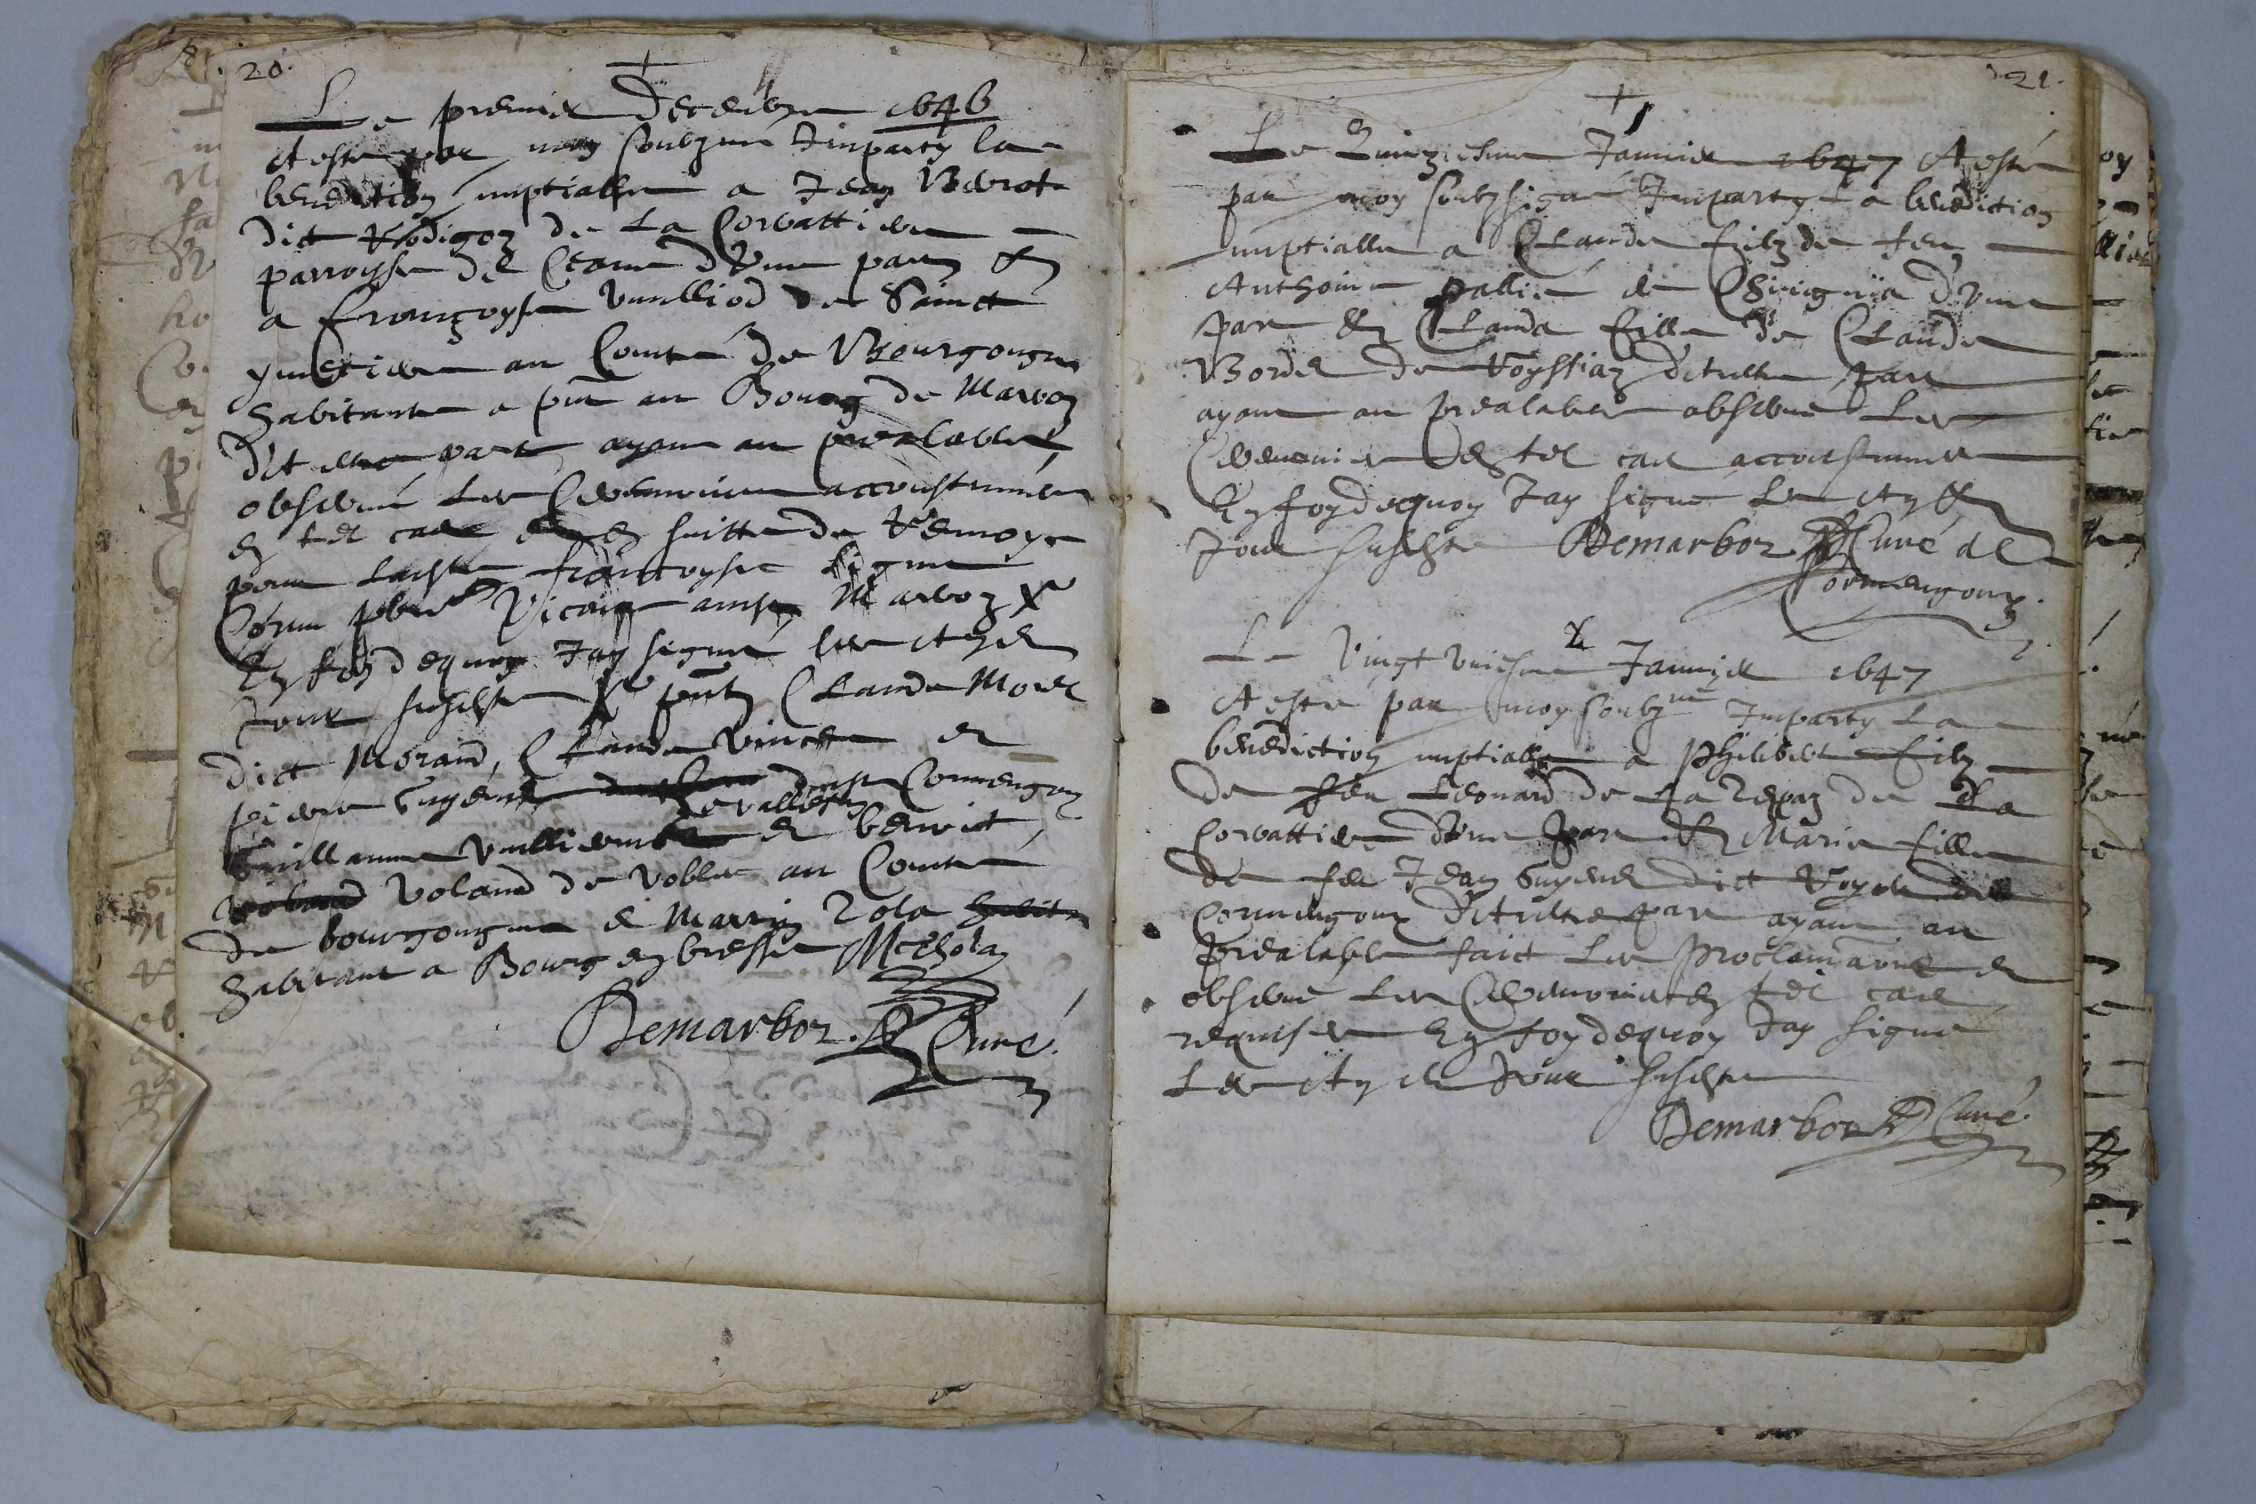 20.
Le premier Decembre 1646
A esté par moy soubzné Imparty la
benediction nuptialle a Jean Berrot
dict Rodigoz de La Corvattiere
parroysse de d'une part Et
a Françoyse Vuilliod de Sainct
ymetiere au Comté de Bourgongne
habitante a pnt au Bourg de Marboz
d'Autre part ayant au prealable
observé Les Ceremonies accoustumées
en tel cas et en suitte de Remoyse
pour Laditte françoyse Signé
Cornu pbre Vicaire audit Marboz
En foy dequoy Jay signé les An et
Jour susdits pntz Claude Morel
dict Moraind, Claude Vincent et
pierre Guyenet dudit Cormengoux
Guillaume Vuilliermet et benoict
Voland de Vobles au Comté
de bourgongne et Marin Zola
habitant a Bourg en bresse Mre Cholaz
Demarboz Curé.
21.
Le Quinziesme Janvier 1647 A esté
par moy soubzsigné Imparty La benediction
nuptialle a Claude filz de feu
Anthoine pallié de Chirignia d'une
part Et Clauda fille de Claude
Border de Voyssiaz d'Autre part
ayant au prealable observé Les
Ceremonies En tel cas accoustumées
En foy dequoy Jay signé Les An et
Jour susdits Demarboz Curé de
Cormengoux.
Le Vingt uniesme Janvier 1647
A esté par moy soubzné Imparty La
benediction nuptialle a philibert filz
de feu Leonard de La Repaz de La
Corvattiere d'une part Et Marie fille
de feu Jean Guyenet dict Royer de
Cormengoux d'Autre part ayant au
prealable faict Les proclamations et
observé Les Ceremonies en tel cas
requises En foy dequoy Jay signé
Les An et Jour susdits
Demarboz Curé.